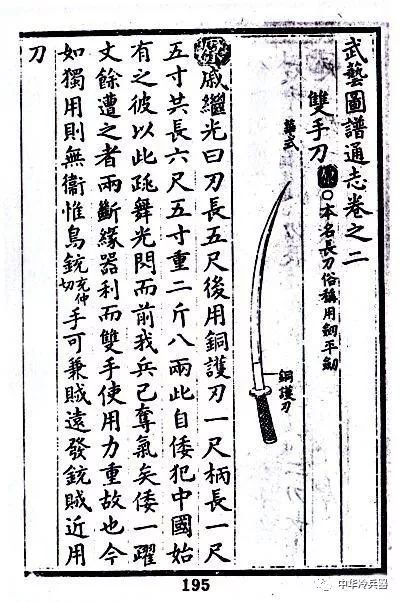 武藝圖譜通志卷之二
雙手刀
○本名長刀俗稱用劒平劒
華式
銅護刃
戚繼光曰刀長五尺後用銅護刃一尺柄長一尺
五寸共長六尺五寸重二斤八兩此自倭犯中國始
有之彼以此跳舞光閃而前我兵已奪氣矣倭一躍
丈餘遭之者兩斷緣器利而雙手使用力重故也今
如獨用則無衞惟鳥銃充仲切手可兼賊遠發銃賊近用
刀
195
中华冷兵器